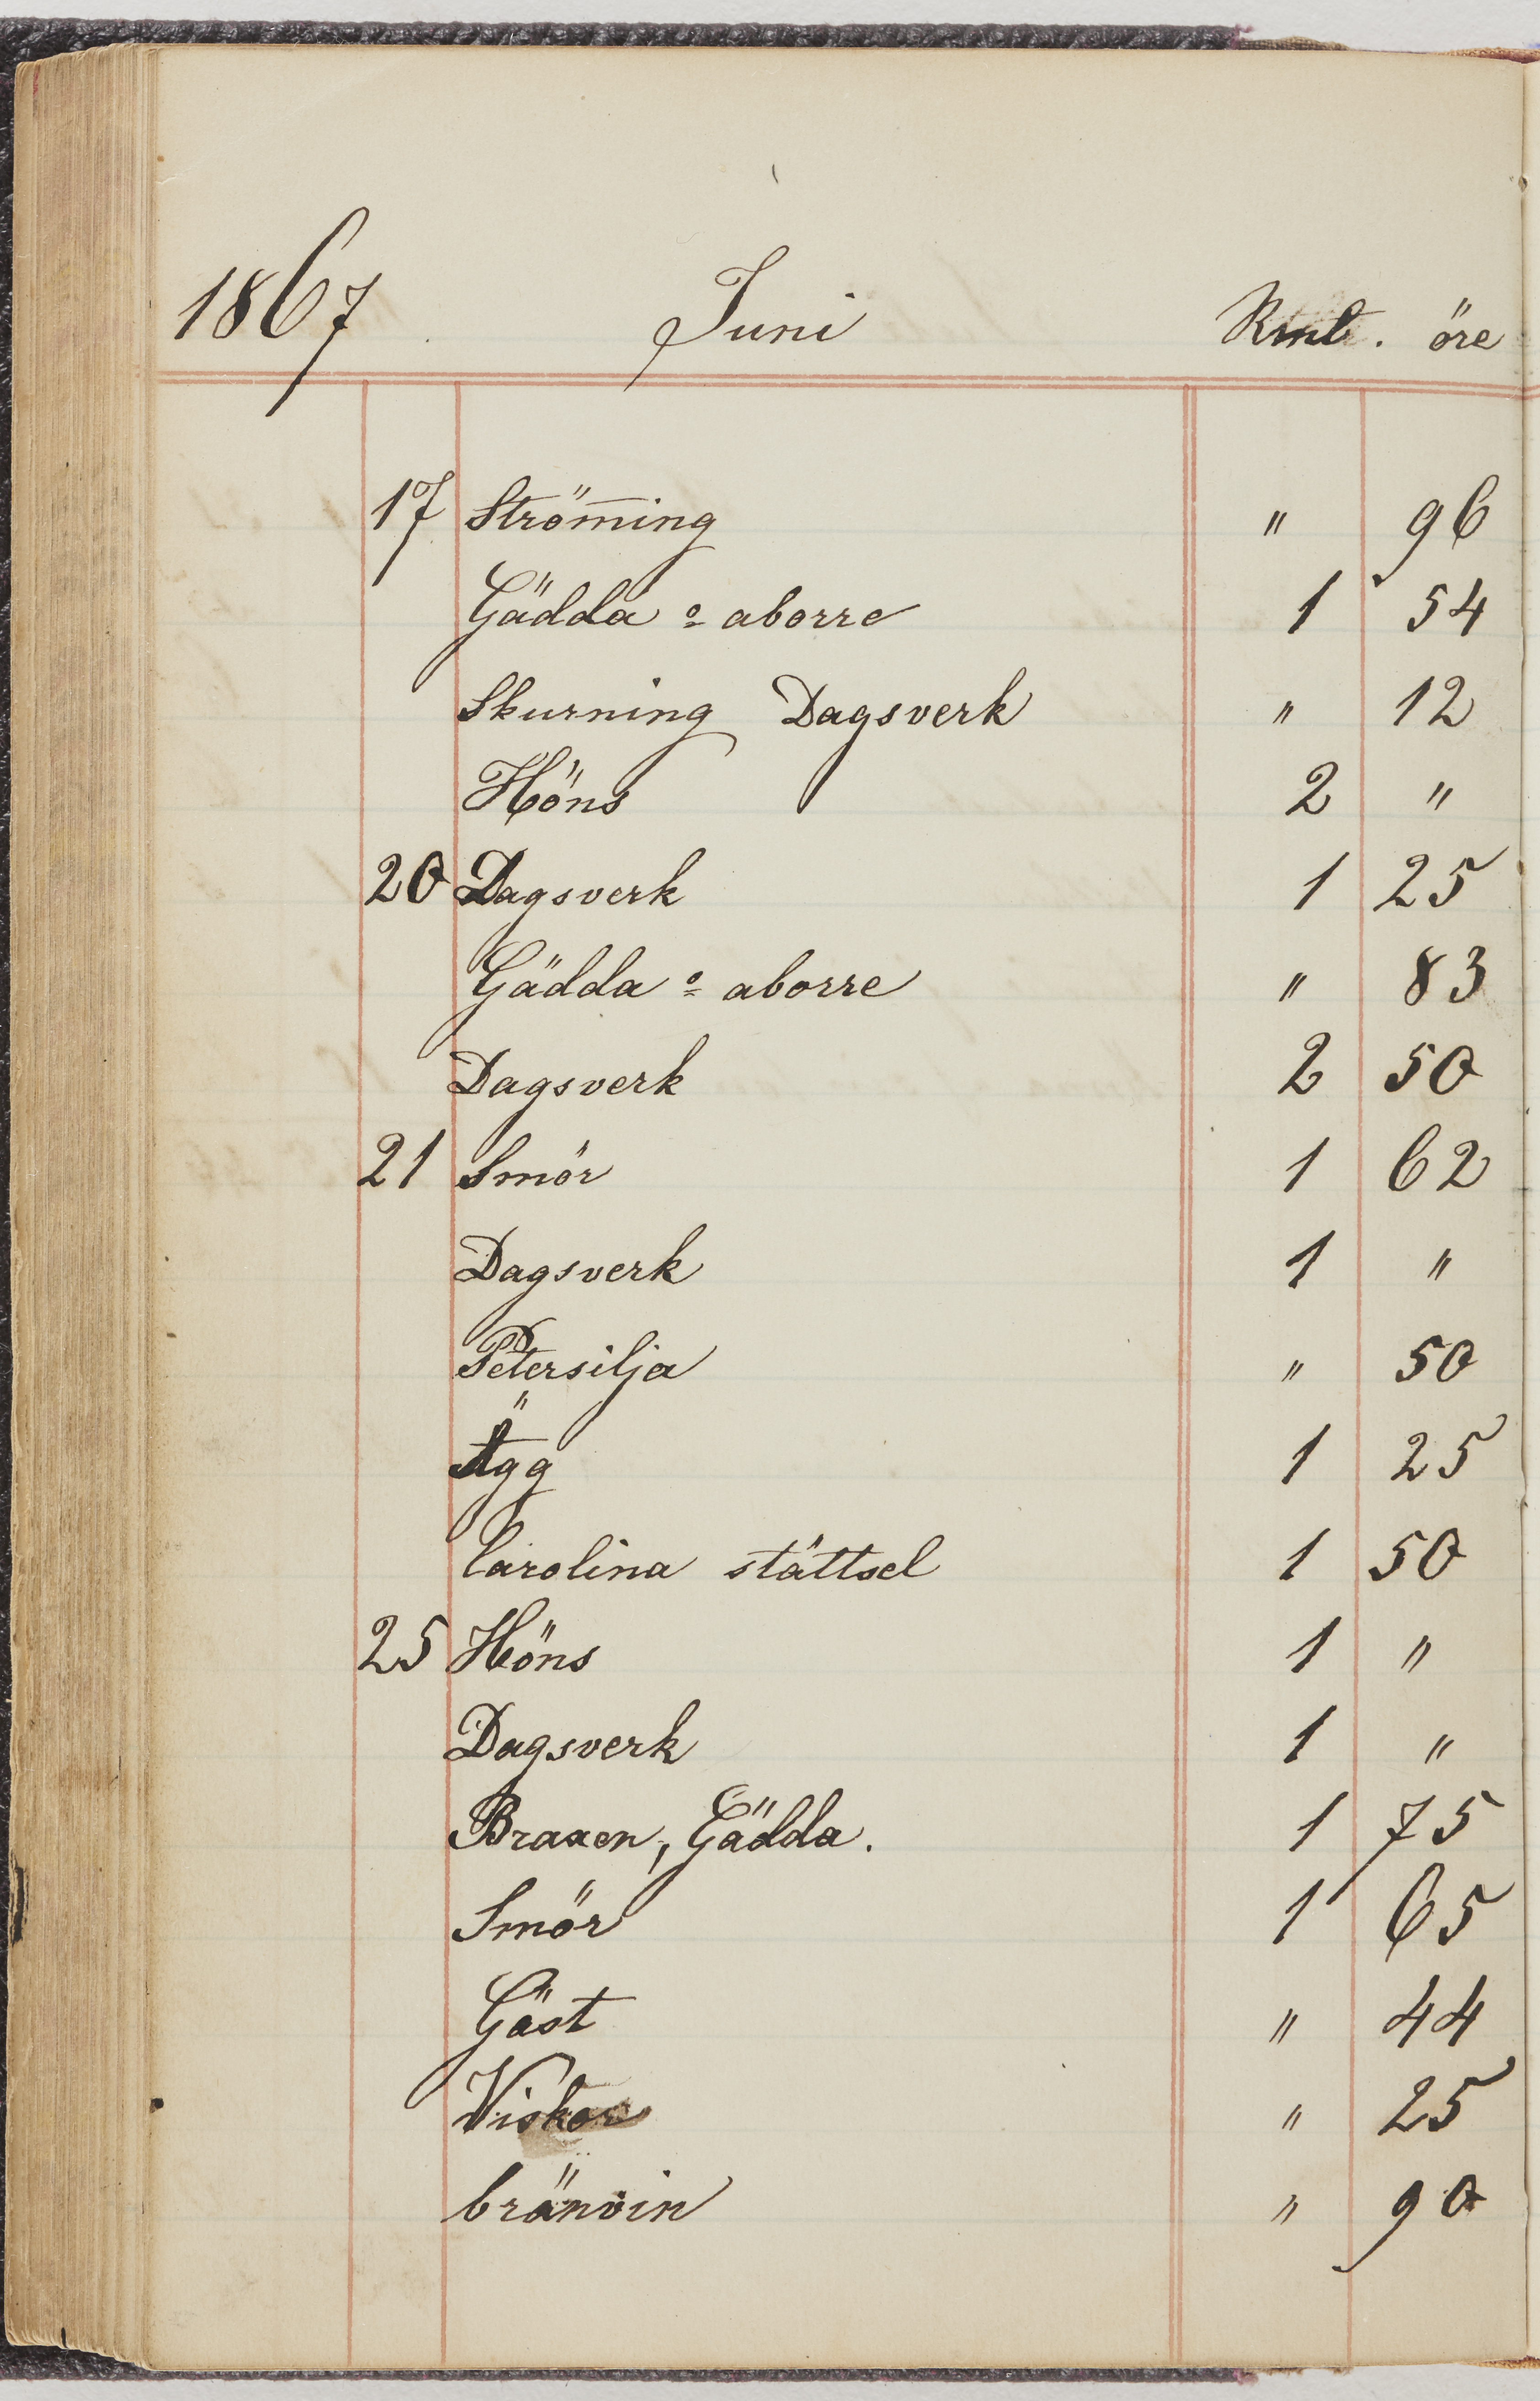 1867 Juni Rmt. öre
17 Strömīng " 96
Gädda o aborre 1 54
Skurning Dagsverk " 12
Höns 2 "
20 Dagsverk 1 25
Gädda o aborre " 83
Dagsverk 2 50
21 Smör 1 62
Dagsverk 1 "
Petersilja " 50
Ägg 1 25
Carolina stättsel 1 50
25 Höns 1 "
Dagsverk 1 "
Braxen, Gädda. 1 75
Smör 1 65
Gäst " 44
Viskor " 25
bränvin " 90